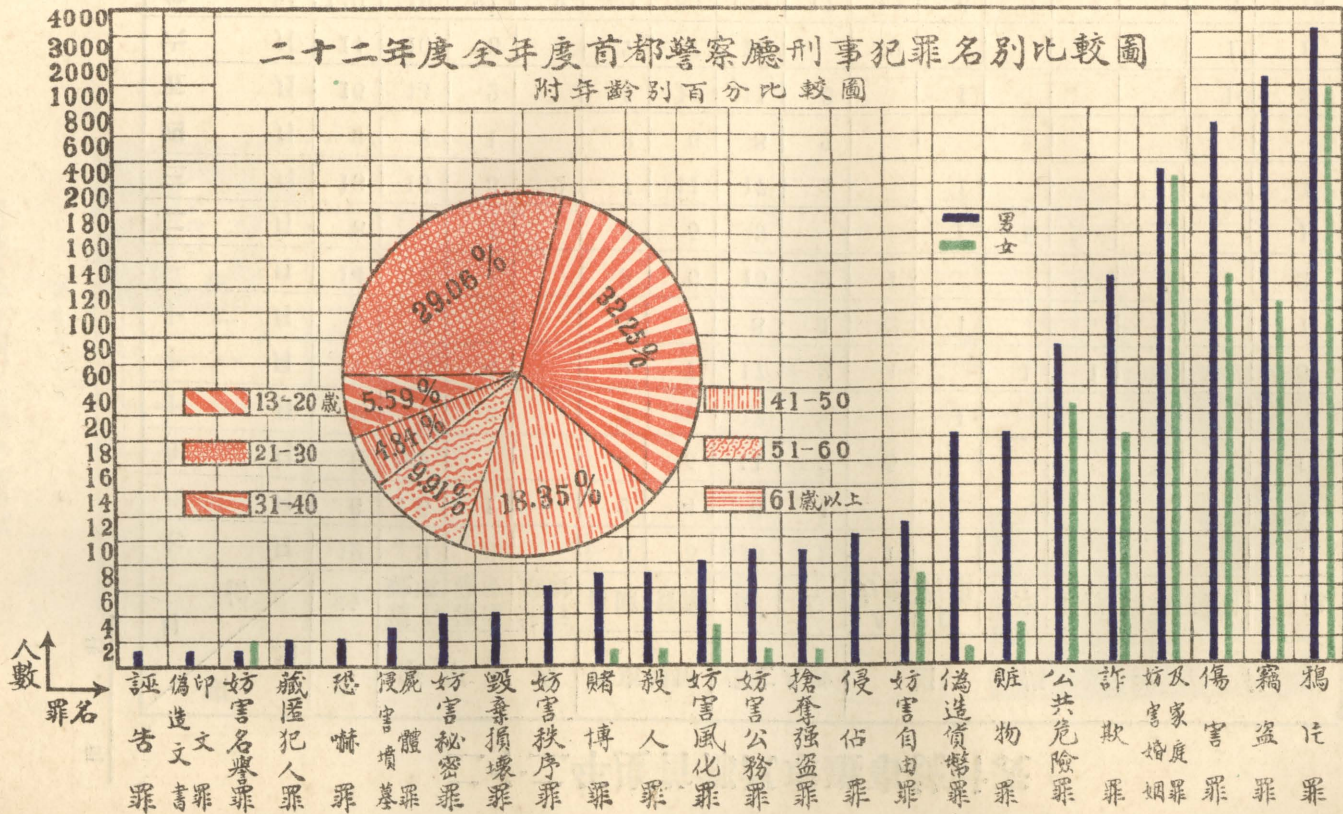 二十二年度全年度首都警察廳刑事犯罪名別比較圖
附年齡別百分比較圖
4000
3000
2000
1000
800
600
400
200
180
160
140
120
100
80
60
40
20
18
16
14
12
10
8
6
4
2
人數
罪名
男
女
29.06%
32.25%
5.59%
4.84%
9.91%
18.35%
13-20歲
21-30
31-40
41-50
51-60
61歲以上
誣告罪
偽造文書印文罪
妨害名譽罪
藏匿犯人罪
恐嚇罪
侵害墳墓屍體罪
妨害秘密罪
毀棄損壞罪
妨害秩序罪
賭博罪
殺人罪
妨害風化罪
妨害公務罪
搶奪强盗罪
侵佔罪
妨害自由罪
偽造貨幣罪
賍物罪
公共危險罪
詐欺罪
妨害婚姻及家庭罪
傷害罪
竊盗罪
鴉片罪